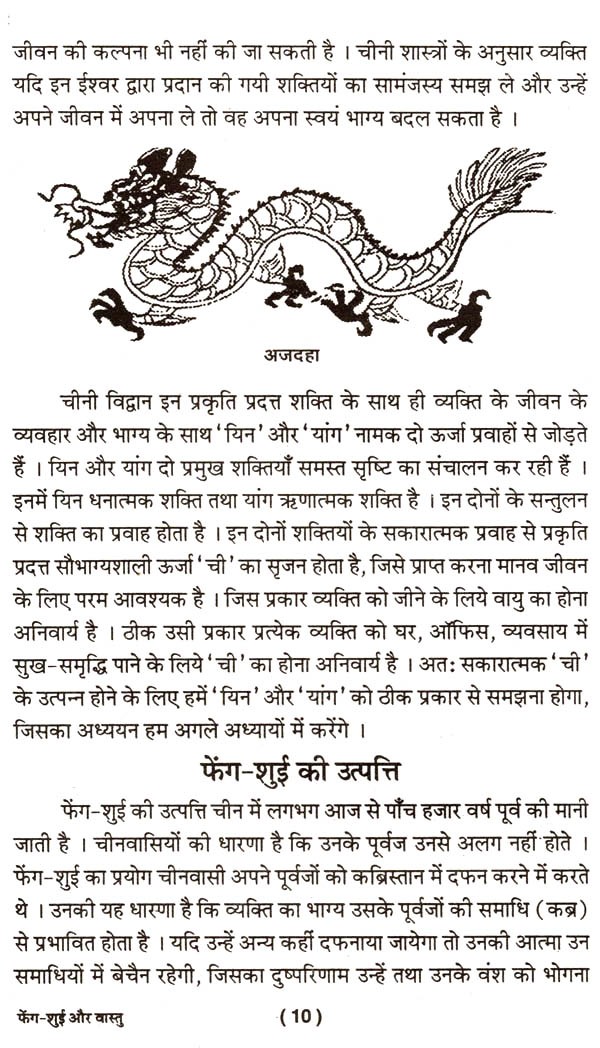 जीवन की कल्पना भी नहीं की जा सकती है । चीनी शास्त्रों के अनुसार व्यक्ति
यदि इन ईश्वर द्वारा प्रदान की गयी शक्तियों का सामंजस्य समझ ले और उन्हें
अपने जीवन में अपना ले तो वह अपना स्वयं भाग्य बदल सकता है ।
अजदहा
चीनी विद्वान इन प्रकृति प्रदत्त शक्ति के साथ ही व्यक्ति के जीवन के
व्यवहार और भाग्य के साथ ‘यिन’ और ‘यांग’ नामक दो ऊर्जा प्रवाहों से जोड़ते
हैं । यिन और यांग दो प्रमुख शक्तियाँ समस्त सृष्टि का संचालन कर रही हैं ।
इनमें यिन धनात्मक शक्ति तथा यांग ऋणात्मक शक्ति है । इन दोनों के सन्तुलन
से शक्ति का प्रवाह होता है । इन दोनों शक्तियों के सकारात्मक प्रवाह से प्रकृति
प्रदत्त सौभाग्यशाली ऊर्जा ‘ची’ का सृजन होता है, जिसे प्राप्त करना मानव जीवन
के लिए परम आवश्यक है । जिस प्रकार व्यक्ति को जीने के लिये वायु का होना
अनिवार्य है । ठीक उसी प्रकार प्रत्येक व्यक्ति को घर, ऑफिस, व्यवसाय में
सुख-समृद्धि पाने के लिये ‘ची’ का होना अनिवार्य है । अत: सकारात्मक ‘ची’
के उत्पन्न होने के लिए हमें ‘यिन’ और ‘यांग’ को ठीक प्रकार से समझना होगा,
जिसका अध्ययन हम अगले अध्यायों में करेंगे ।
फेंग-शुई की उत्पत्ति
फेंग-शुई की उत्पत्ति चीन में लगभग आज से पाँच हजार वर्ष पूर्व की मानी
जाती है । चीनवासियों की धारणा है कि उनके पूर्वज उनसे अलग नहीं होते ।
फेंग-शुई का प्रयोग चीनवासी अपने पूर्वजों को कब्रिस्तान में दफन करने में करते
थे । उनकी यह धारणा है कि व्यक्ति का भाग्य उसके पूर्वजों की समाधि (कब्र)
से प्रभावित होता है । यदि उन्हें अन्य कहीं दफनाया जायेगा तो उनकी आत्मा उन
समाधियों में बेचैन रहेगी, जिसका दुष्परिणाम उन्हें तथा उनके वंश को भोगना
फेंग-शुई और वास्तु
(10)